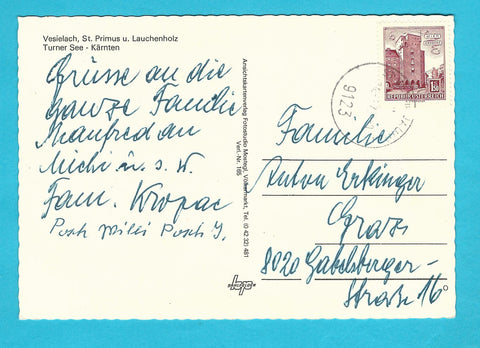 Vesielach, St. Primus u. Lauchenholz
Turner See - Kärnten
Grüsse an die
ganze Familie
Manfred an
Michi u. s. w.
Fam. Kropac
Posch Willi Posch J.
Ansichtskartenverlag Fotostudio Mosingl, Völkermarkt, Tel. (0 42 32) 481
Verl.-Nr. 165
9123
REPUBLIK ÖSTERREICH
Familie
Anton Erkinger
Graz
8020 Gabelsberger-
Straße 16